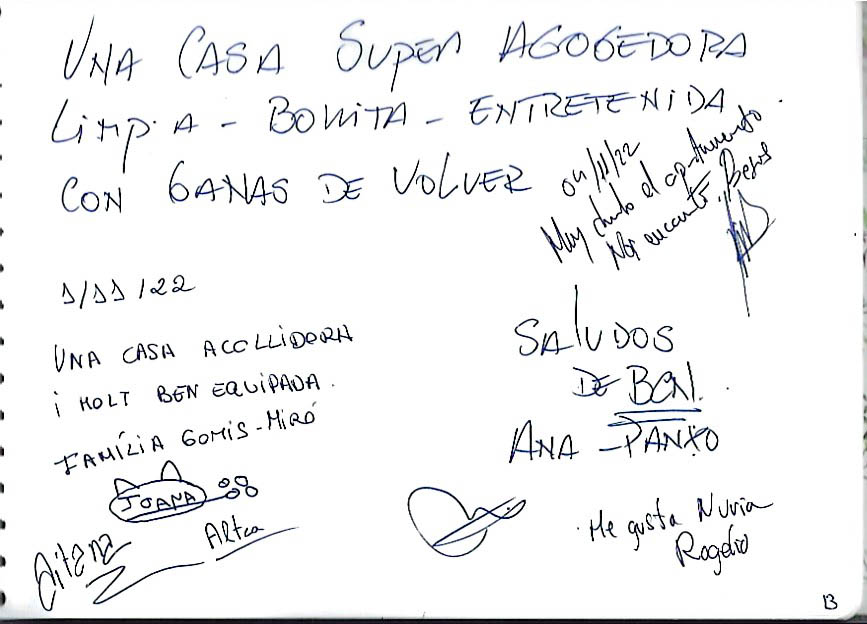 UNA CASA SUPER AGOGEDORA
LIMPIA - BONITA - ENTRETENIDA
CON GANAS DE VOLVER
04/11/22
Muy chulo el apartamento
Nos encanta. Besos
1/11/22
UNA CASA ACOLLIDORA
i MOLT BEN EQUIPADA.
FAMÍLIA GOMIS-MIRÓ
JOANA
Aitana
Altea
SALUDOS
DE BCN.
ANA - PANXO
Me gusta Nuria
Rogelio
13